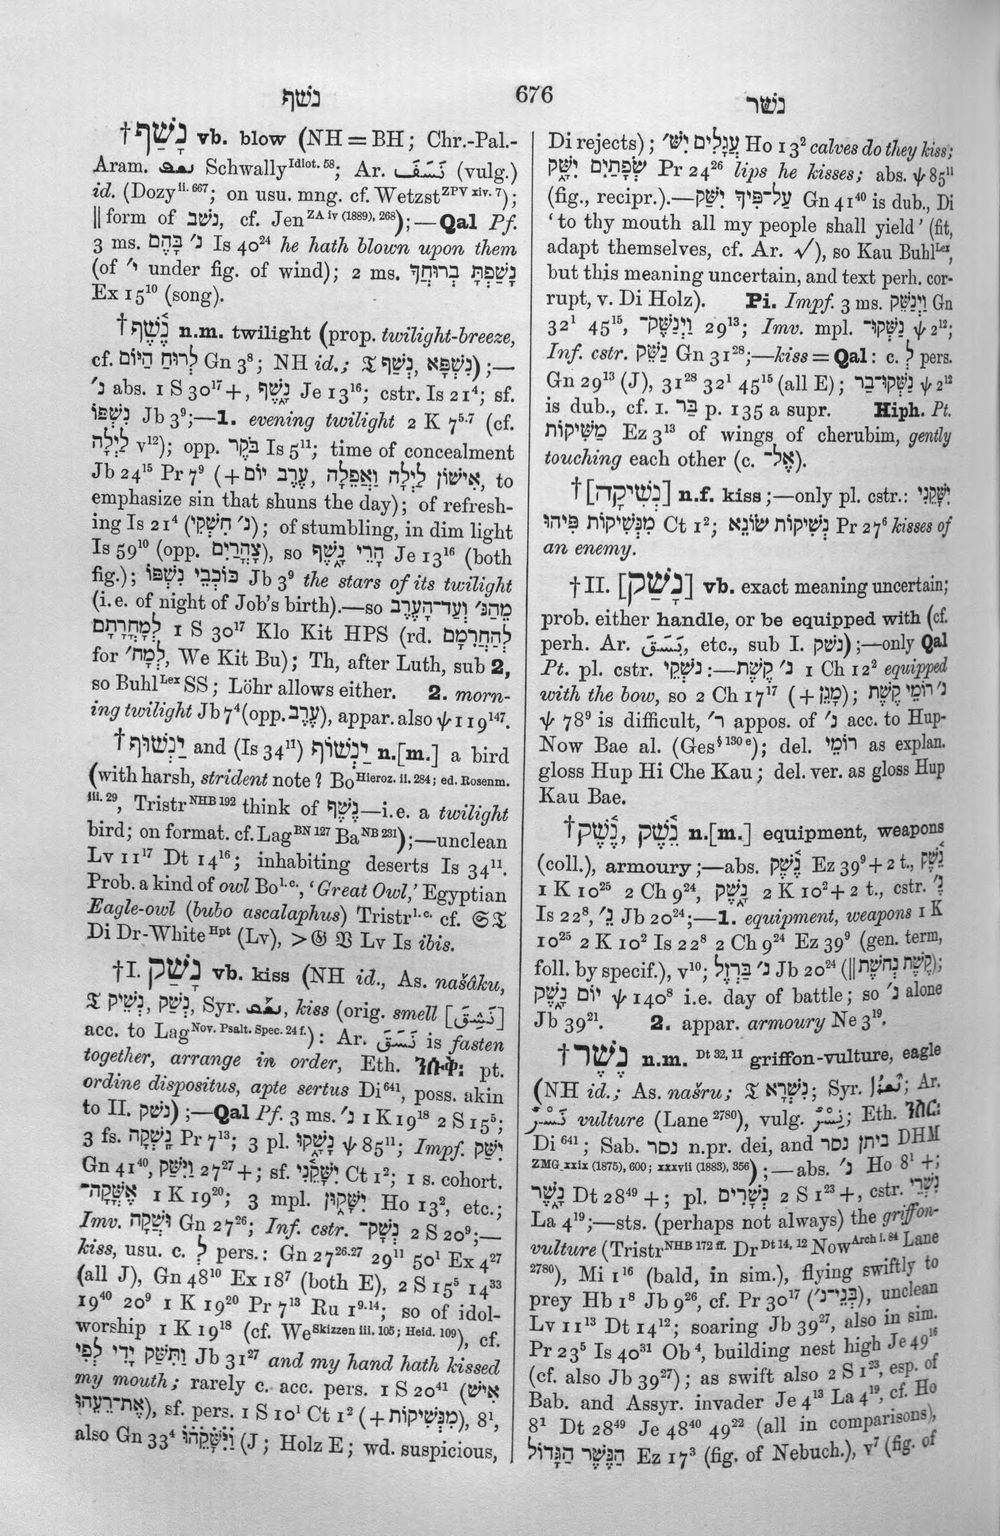 נשׁף
676
נשׁר
†נָשַׁף vb. blow (NH = BH; Chr.-Pal.-
Aram. Schwally Idiot. 58; Ar. نَسَفَ (vulg.)
id. (Dozy ii. 667; on usu. mng. cf. Wetzst ZPV xiv. 7);
|| form of נשׁב, cf. Jen ZA iv (1889), 268);—Qal Pf.
3 ms. נ׳ בָּהֶם Is 40²⁴ he hath blown upon them
(of י׳ under fig. of wind); 2 ms. נָשַׁפְתָּ בְרוּחֲךָ
Ex 15¹⁰ (song).
†נֶ֫שֶׁף n.m. twilight (prop. twilight-breeze,
cf. לְרוּחַ הַיּוֹם Gn 3⁸; NH id.; 𝔗 נִשְׁפָּא, נְשַׁף);—
נ׳ abs. 1 S 30¹⁷ +, נָ֑שֶׁף Je 13¹⁶; cstr. Is 21⁴; sf.
נִשְׁפּוֹ Jb 3⁹;—1. evening twilight 2 K 7⁵·⁷ (cf.
לַיְלָה v¹²); opp. בֹּקֶר Is 5¹¹; time of concealment
Jb 24¹⁵ Pr 7⁹ (+ אִישׁוֹן לַיְלָה וַאֲפֵלָה, עֶרֶב יוֹם, to
emphasize sin that shuns the day); of refresh-
ing Is 21⁴ (נ׳ חִשְׁקִי); of stumbling, in dim light
Is 59¹⁰ (opp. צָהֳרַיִם), so הָרֵי נָ֑שֶׁף Je 13¹⁶ (both
fig.); כּוֹכְבֵי נִשְׁפּוֹ Jb 3⁹ the stars of its twilight
(i.e. of night of Job's birth).—so מֵהַנּ׳ וְעַד־הָעֶרֶב
לְמָחֳרָתָם 1 S 30¹⁷ Klo Kit HPS (rd. לְהַחֲרִמָם
for לְמָח׳, We Kit Bu); Th, after Luth, sub 2,
so Buhl Lex SS; Löhr allows either. 2. morn-
ing twilight Jb 7⁴ (opp. עֶרֶב), appar. also ψ 119¹⁴⁷.
†יַנְשׁוּף and (Is 34¹¹) יַנְשׁוֹף n.[m.] a bird
(with harsh, strident note? Bo Hieroz. ii. 284; ed. Rosenm.
iii. 29, Tristr NHB 192 think of נֶשֶׁף—i.e. a twilight
bird; on format. cf. Lag BN 127 Ba NB 231);—unclean
Lv 11¹⁷ Dt 14¹⁶; inhabiting deserts Is 34¹¹.
Prob. a kind of owl Bo l.c., 'Great Owl,' Egyptian
Eagle-owl (bubo ascalaphus) Tristr l.c. cf. 𝔖 𝔗
Di Dr-White Hpt (Lv), > 𝔊 𝔙 Lv Is ibis.
†I. נָשַׁק vb. kiss (NH id., As. našâku,
𝔗 נְשֵׁיק, נְשַׁק, Syr. kiss (orig. smell [نَشِقَ]
acc. to Lag Nov. Psalt. Spec. 24 f.): Ar. نَسَقَ is fasten
together, arrange in order, Eth. pt.
ordine dispositus, apte sertus Di 641, poss. akin
to II. נשׁק);—Qal Pf. 3 ms. נ׳ 1 K 19¹⁸ 2 S 15⁵;
3 fs. נָֽשְׁקָה Pr 7¹³; 3 pl. נָשָׁ֑קוּ ψ 85¹¹; Impf. יִשַּׁק
Gn 41⁴⁰, וַיִּשַּׁק 27²⁷ +; sf. יִשָּׁקֵ֫נִי Ct 1²; 1 s. cohort.
אֶשְּׁקָה־ 1 K 19²⁰; 3 mpl. יִשָּׁק֑וּן Ho 13², etc.;
Imv. וּשְׁקָה Gn 27²⁶; Inf. cstr. נְשָׁק־ 2 S 20⁹;—
kiss, usu. c. לְ pers.: Gn 27²⁶·²⁷ 29¹¹ 50¹ Ex 4²⁷
(all J), Gn 48¹⁰ Ex 18⁷ (both E), 2 S 15⁵ 14³³
19⁴⁰ 20⁹ 1 K 19²⁰ Pr 7¹³ Ru 1⁹·¹⁴; so of idol-
worship 1 K 19¹⁸ (cf. We Skizzen iii. 105; Heid. 109), cf.
וַתִּשַּׁק יָדִי לְפִי Jb 31²⁷ and my hand hath kissed
my mouth; rarely c. acc. pers. 1 S 20⁴¹ (אִישׁ
אֶת־רֵעֵהוּ), sf. pers. 1 S 10¹ Ct 1² (+ מִנְּשִׁיקוֹת), 8¹,
also Gn 33⁴ וַיִּשָּׁקֵהוּ (J; Holz E; wd. suspicious,
Di rejects); עֲגָלִים יִשּׁ׳ Ho 13² calves do they kiss;
שְׂפָתַיִם יִשָּׁ֑ק Pr 24²⁶ lips he kisses; abs. ψ 85¹¹
(fig., recipr.).—עַל־פִּיךָ יִשַּׁק Gn 41⁴⁰ is dub., Di
'to thy mouth all my people shall yield' (fit,
adapt themselves, cf. Ar. √), so Kau Buhl Lex,
but this meaning uncertain, and text perh. cor-
rupt, v. Di Holz). Pi. Impf. 3 ms. וַיְנַשֵּׁק Gn
32¹ 45¹⁵, וַיְנַשֶּׁק־ 29¹³; Imv. mpl. נַשְּׁקוּ־ ψ 2¹²;
Inf. cstr. נַשֵּׁק Gn 31²⁸;—kiss = Qal: c. לְ pers.
Gn 29¹³ (J), 31²⁸ 32¹ 45¹⁵ (all E); נַשְּׁקוּ־בַר ψ 2¹²
is dub., cf. I. בַּר p. 135 a supr. Hiph. Pt.
מַשִּׁיקוֹת Ez 3¹³ of wings of cherubim, gently
touching each other (c. אֶל־).
†[נְשִׁיקָה] n.f. kiss;—only pl. cstr.: יִשָּׁקֵנִי
מִנְּשִׁיקוֹת פִּיהוּ Ct 1²; נְשִׁיקוֹת שׂוֹנֵא Pr 27⁶ kisses of
an enemy.
†II. [נָשַׁק] vb. exact meaning uncertain;
prob. either handle, or be equipped with (cf.
perh. Ar. نَسَقَ, etc., sub I. נשׁק);—only Qal
Pt. pl. cstr. נֹשְׁקֵי:—נ׳ קֶשֶׁת 1 Ch 12² equipped
with the bow, so 2 Ch 17¹⁷ (+ מָגֵן); נ׳ רוֹמֵי קֶשֶׁת
ψ 78⁹ is difficult, ר׳ appos. of נ׳ acc. to Hup-
Now Bae al. (Ges § 130 e); del. רוֹמֵי as explan.
gloss Hup Hi Che Kau; del. ver. as gloss Hup
Kau Bae.
†נֵ֫שֶׁק, נֶ֫שֶׁק n.[m.] equipment, weapons
(coll.), armoury;—abs. נֶ֫שֶׁק Ez 39⁹ + 2 t., נֵ֫שֶׁק
1 K 10²⁵ 2 Ch 9²⁴, נָ֑שֶׁק 2 K 10² + 2 t., cstr. נֶ׳
Is 22⁸, נֵ׳ Jb 20²⁴;—1. equipment, weapons 1 K
10²⁵ 2 K 10² Is 22⁸ 2 Ch 9²⁴ Ez 39⁹ (gen. term,
foll. by specif.), v¹⁰; נ׳ בַּרְזֶל Jb 20²⁴ (|| קֶשֶׁת נְחֻשָׁת);
יוֹם נָ֑שֶׁק ψ 140⁸ i.e. day of battle; so נ׳ alone
Jb 39²¹. 2. appar. armoury Ne 3¹⁹.
†נֶ֫שֶׁר n.m. Dt 32, 11 griffon-vulture, eagle
(NH id.; As. našru; 𝔗 נִשְׁרָא; Syr. ܢܫܪܐ; Ar.
نَسْرٌ vulture (Lane 2780), vulg. نِسْر; Eth.
Di 641; Sab. נסר n.pr. dei, and ביתן נסר DHM
ZMG xxix (1875), 600; xxxvii (1883), 356);—abs. נ׳ Ho 8¹ +;
נָ֑שֶׁר Dt 28⁴⁹ +; pl. נְשָׁרִים 2 S 1²³ +, cstr. נִשְׁרֵי
La 4¹⁹;—sts. (perhaps not always) the griffon-
vulture (Tristr NHB 172 ff. Dr Dt 14, 12 Now Arch i. 84 Lane
2780), Mi 1¹⁶ (bald, in sim.), flying swiftly to
prey Hb 1⁸ Jb 9²⁶, cf. Pr 30¹⁷ (בְּנֵי־נ׳), unclean
Lv 11¹³ Dt 14¹²; soaring Jb 39²⁷, also in sim.
Pr 23⁵ Is 40³¹ Ob⁴, building nest high Je 49¹⁶
(cf. also Jb 39²⁷); as swift also 2 S 1²³, esp. of
Bab. and Assyr. invader Je 4¹³ La 4¹⁹, cf. Ho
8¹ Dt 28⁴⁹ Je 48⁴⁰ 49²² (all in comparisons),
הַנֶּשֶׁר הַגָּדוֹל Ez 17³ (fig. of Nebuch.), v⁷ (fig. of